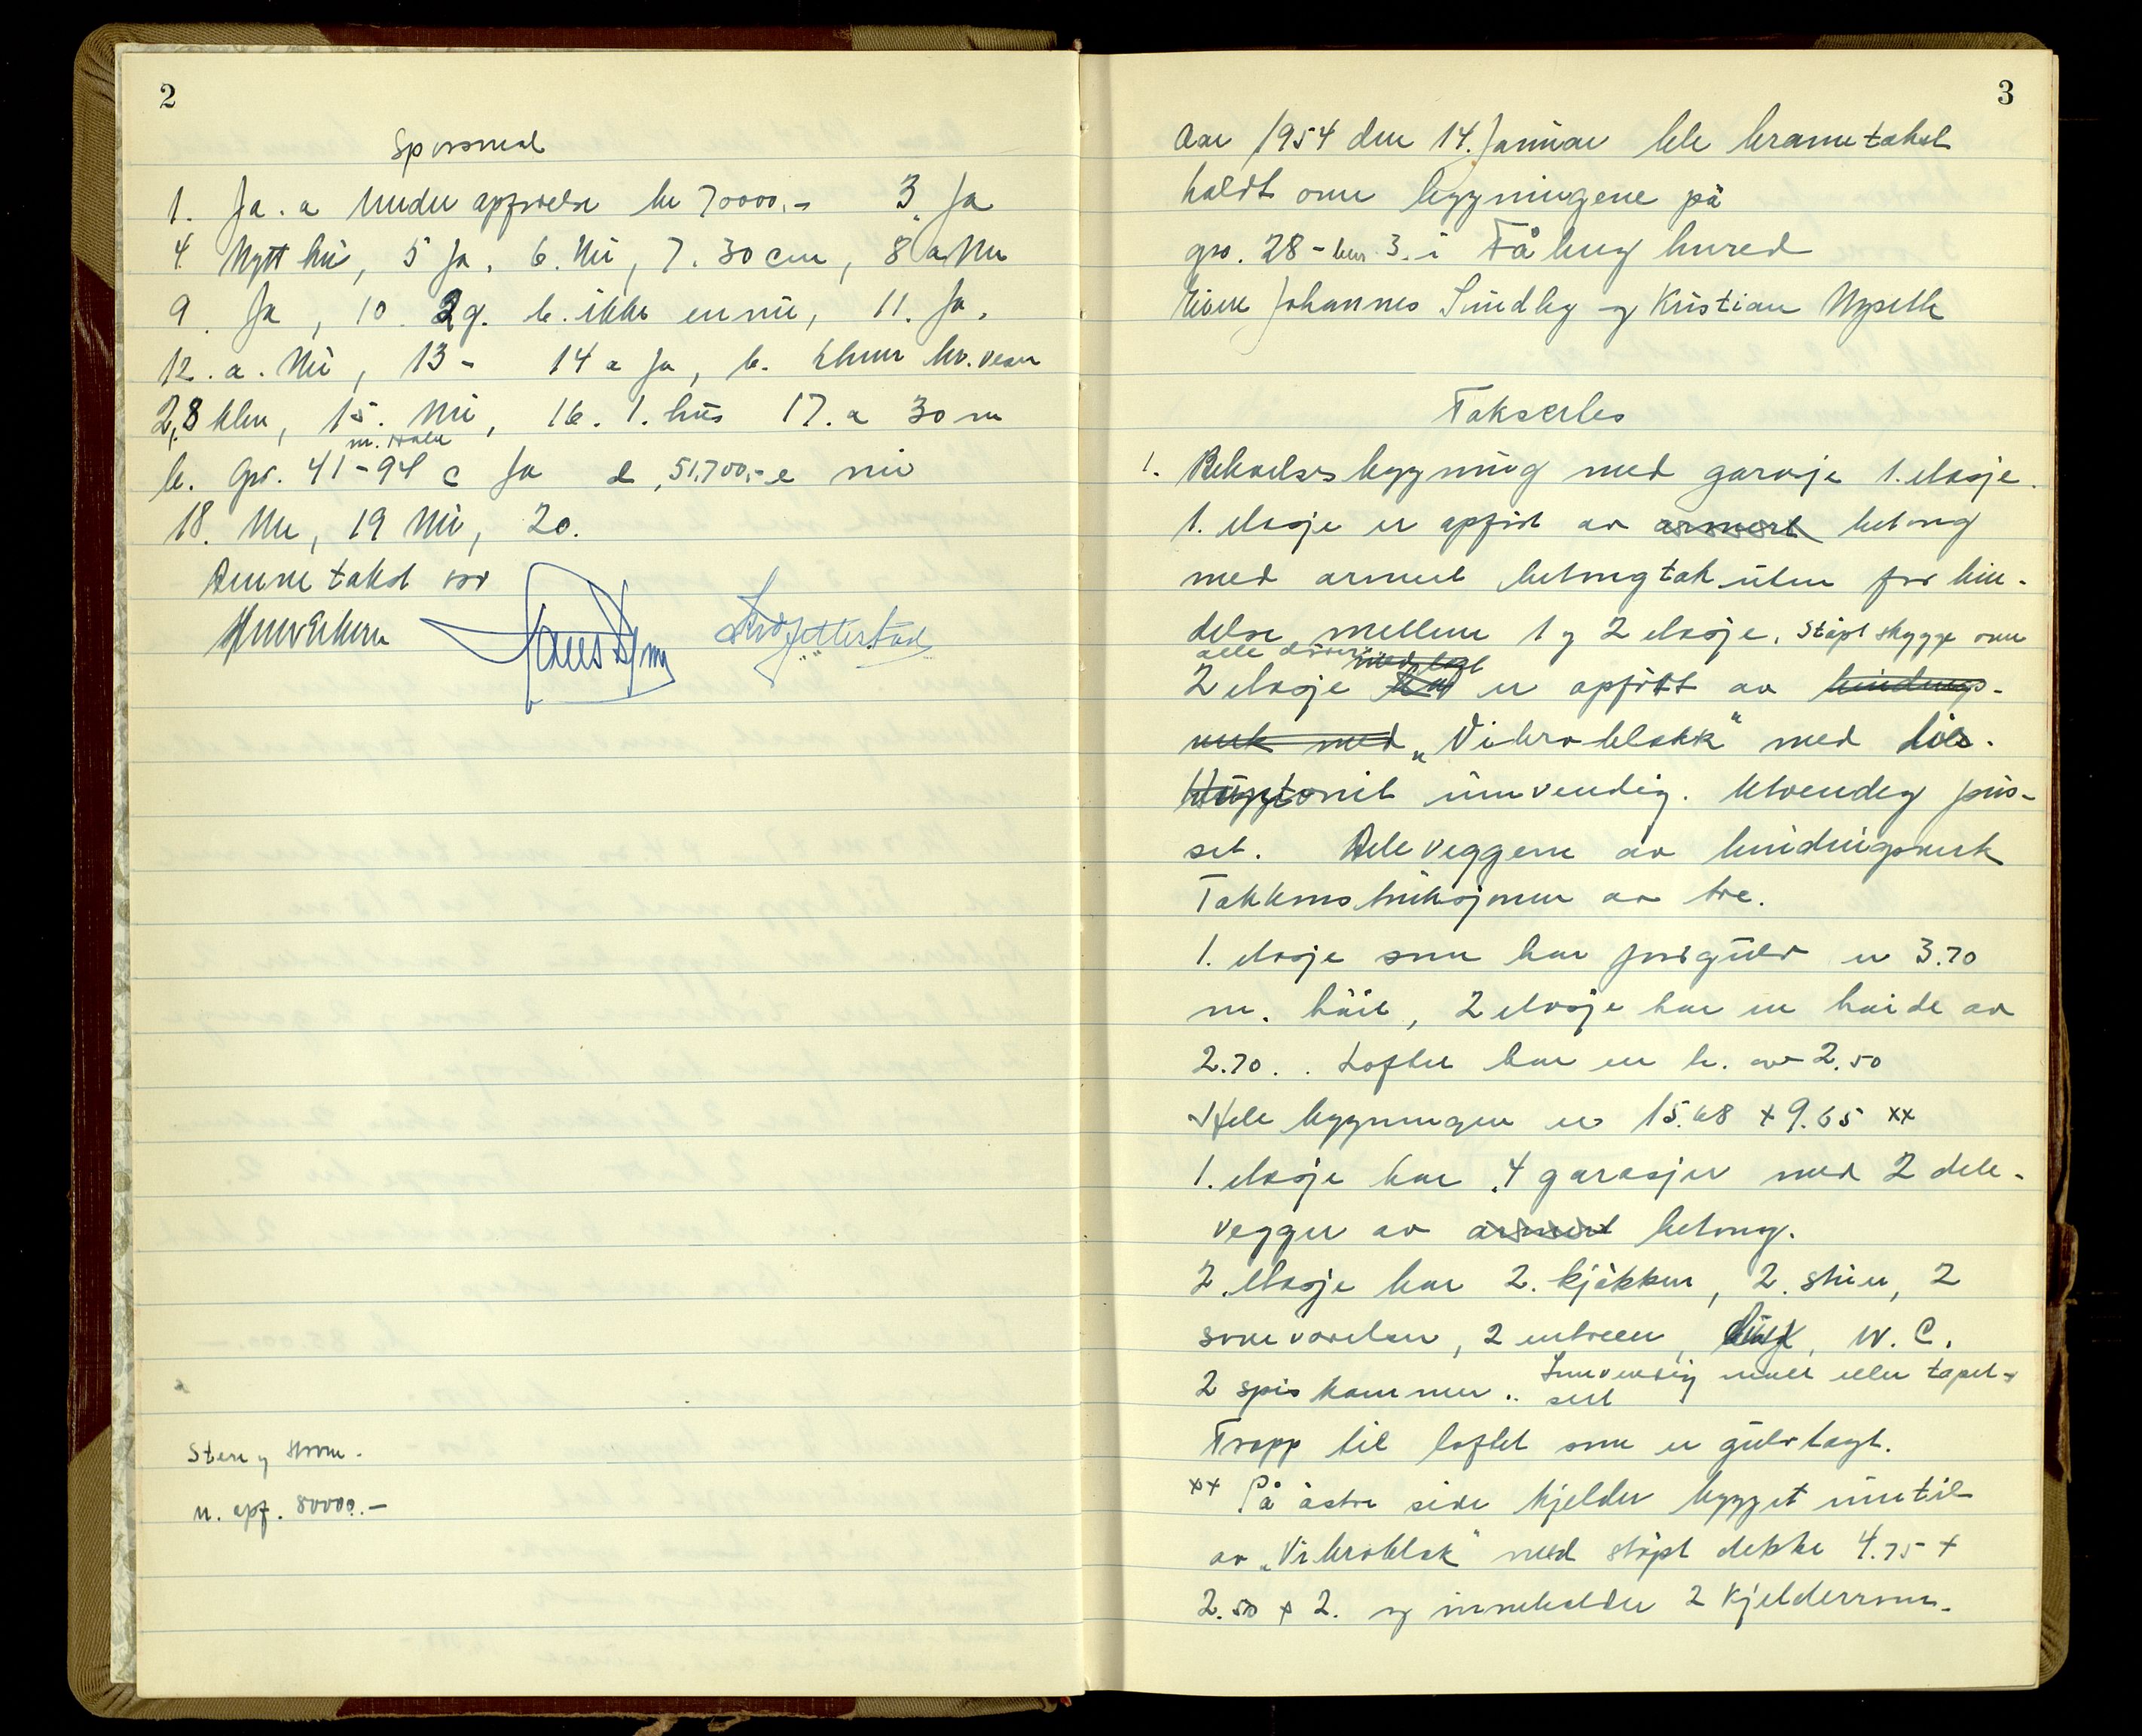 2
Spørsmål
1. Ja. a Under oppførelse kr 70000.- 3. Ja
4. Nytt hus, 5 Ja, 6. Nei, 7. 30 cm, 8 a Nei
9. Ja, 10. 2 g. b. ikke ennu, 11. Ja.
12. a. Nei, 13 - 14 a Ja, b. br.vesen
2,8 klm, 15. Nei, 16. 1. hus 17. a 30 m
m. Hald
b. Gnr. 41-94 c Ja d 51.700,- e nei
18. Nei, 19 Nei, 20.
Denne takst var
Sten og Strøm.
u. opf. 80000.-
3
Aar 1954 den 14. Januar ble branntakst
holdt over bygningene på
gnr. 28 - bnr. 3. i Fåberg herred
Eiere Johannes Sundby og Kristian Nyseth
Takseres
1. Beboelsesbygning med garasje 1. etasje.
1. etasje er opført av armert betong
med armert betongtak uten forbin-
delse mellem 1 og 2 etasje. Støpt skygge over
alle dører
2 etasje er opført av bindings-
verk med „Vibroblokk" med
innvendig. Utvendig pus-
set. Deleveggene av bindingsverk
Takkonstruksjonen av tre.
1. etasje som har jordgulv er 3.70
m. høit, 2 etasje har en høide av
2.70. . Loftet har en h. av 2.50
Hele bygningen er 15.68 x 9.65 xx
1. etasje har 4 garasjer med 2 dele-
vegger av armert betong.
2. etasje har 2. kjøkken, 2. stuer, 2
soveværelser, 2 entreer, W.C.
2 spiskammer. . Innvendig malt eller tapet-
sert
Trapp til loftet som er gulvlagt.
xx På østre side kjelder bygget inntil
av „Vibroblok" med støpt dekke 4.75 x
2.50 x 2. og inneholder 2 kjelderrom.